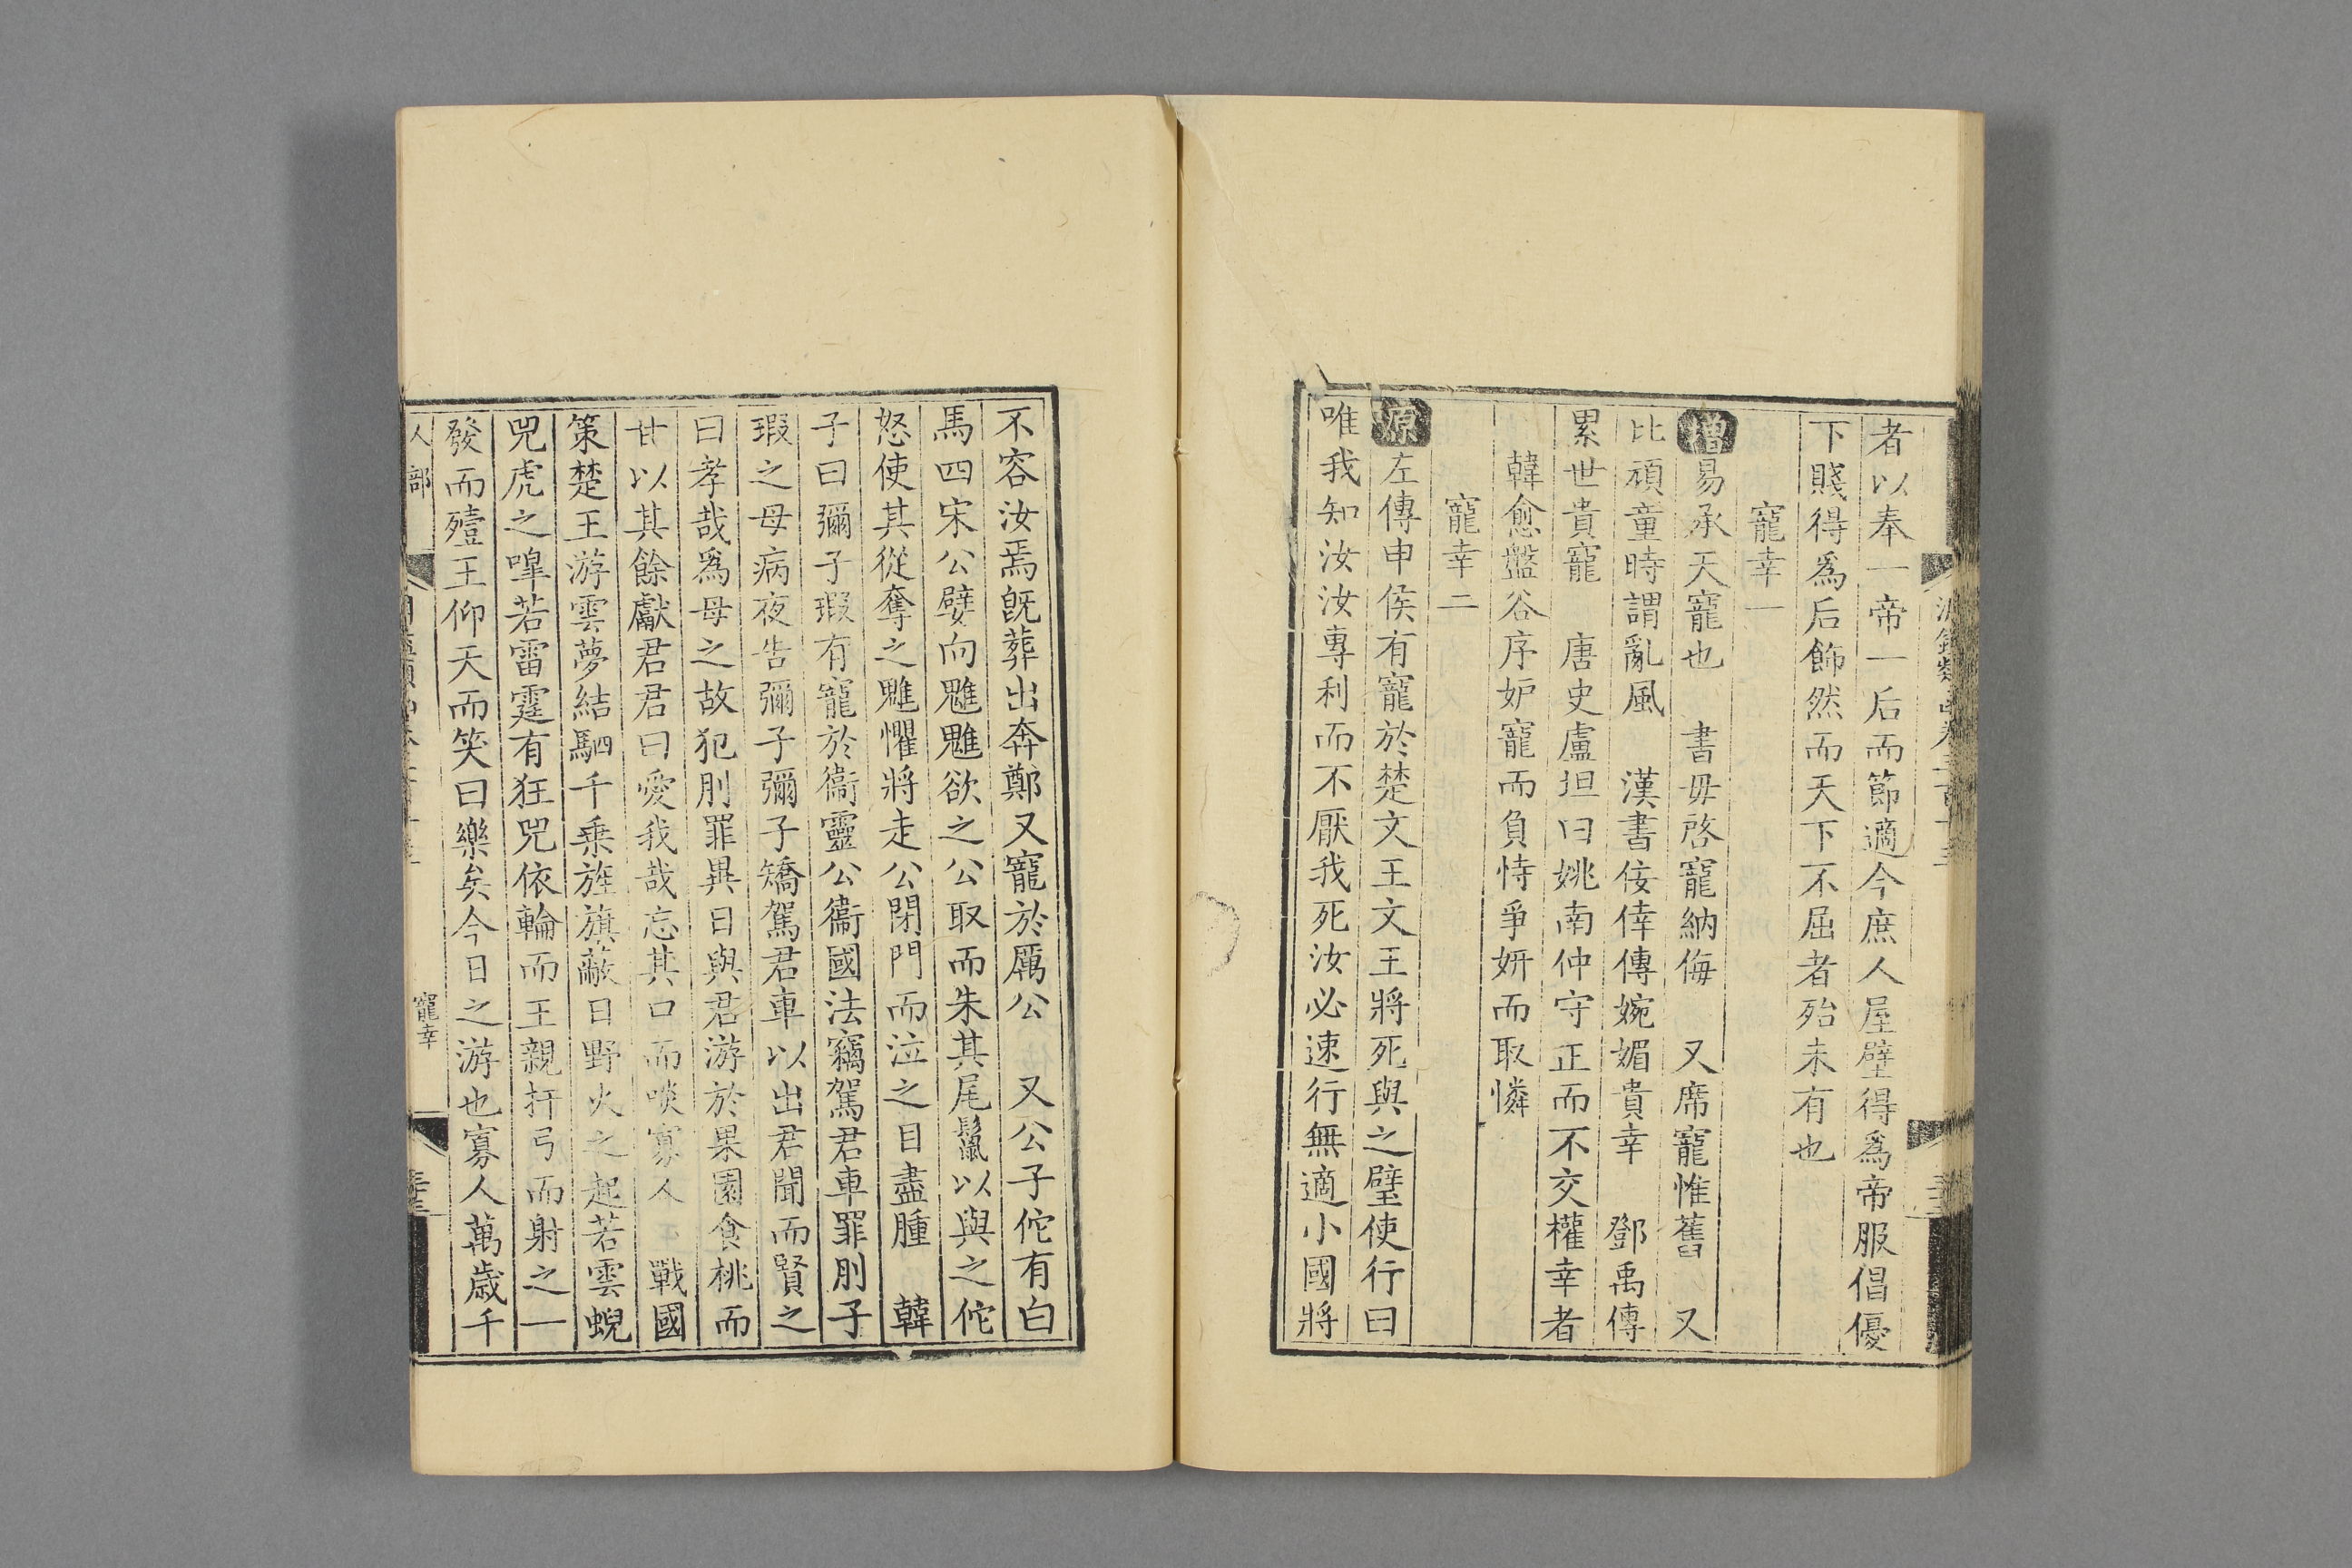 者以奉一帝一后而節適今庶人屋壁得爲帝服倡優
下賤得爲后飾然而天下不屈者殆未有也
寵幸一
增易承天寵也　書毋啓寵納侮　又席寵惟舊　又
比頑童時謂亂風　漢書佞倖傳婉媚貴幸　鄧禹傳
累世貴寵　唐史盧坦曰姚南仲守正而不交權幸者
韓愈盤谷序妒寵而負恃爭妍而取憐
寵幸二
原左傳申侯有寵於楚文王文王將死與之璧使行曰
唯我知汝汝專利而不厭我死汝必速行無適小國將
不容汝焉旣葬出奔鄭又寵於厲公　又公子佗有白
馬四宋公嬖向魋魋欲之公取而朱其尾鬣以與之佗
怒使其從奪之魋懼將走公閉門而泣之目盡腫　韓
子曰彌子瑕有寵於衞靈公衞國法竊駕君車罪刖子
瑕之母病夜告彌子彌子矯駕君車以出君聞而賢之
曰孝哉爲母之故犯刖罪異日與君游於果園食桃而
甘以其餘獻君君曰愛我哉忘其口而啖寡人　戰國
策楚王游雲夢結駟千乗旌旗蔽日野火之起若雲蜺
兕虎之嘷若雷霆有狂兕依輪而王親扞弓而射之一
發而殪王仰天而笑曰樂矣今日之游也寡人萬歲千
人部
寵幸